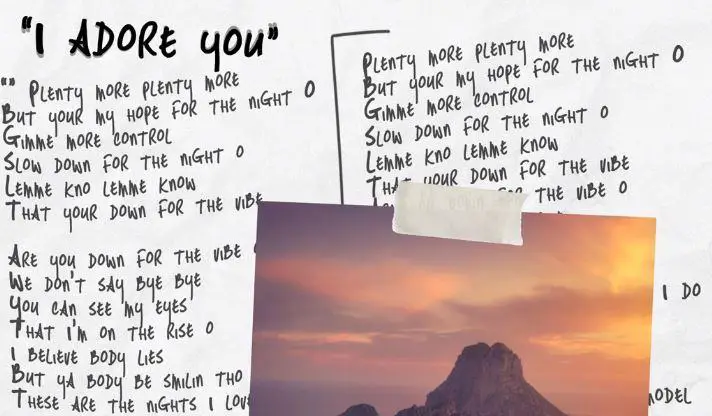 "I ADORE YOU"
"" PLENTY MORE PLENTY MORE
BUT YOUR MY HOPE FOR THE NIGHT O
GIMME MORE CONTROL
SLOW DOWN FOR THE NIGHT O
LEMME KNO LEMME KNOW
THAT YOUR DOWN FOR THE VIBE
ARE YOU DOWN FOR THE VIBE
WE DON'T SAY BYE BYE
YOU CAN SEE MY EYES
THAT I'M ON THE RISE O
I BELIEVE BODY LIES
BUT YA BODY BE SMILIN THO
THESE ARE THE NIGHTS I
PLENTY MORE PLENTY MORE
BUT YOUR MY HOPE FOR THE NIGHT O
GIMME MORE CONTROL
SLOW DOWN FOR THE NIGHT O
LEMME KNO LEMME KNOW
YOUR DOWN FOR THE VIBE
THE VIBE O
I DO